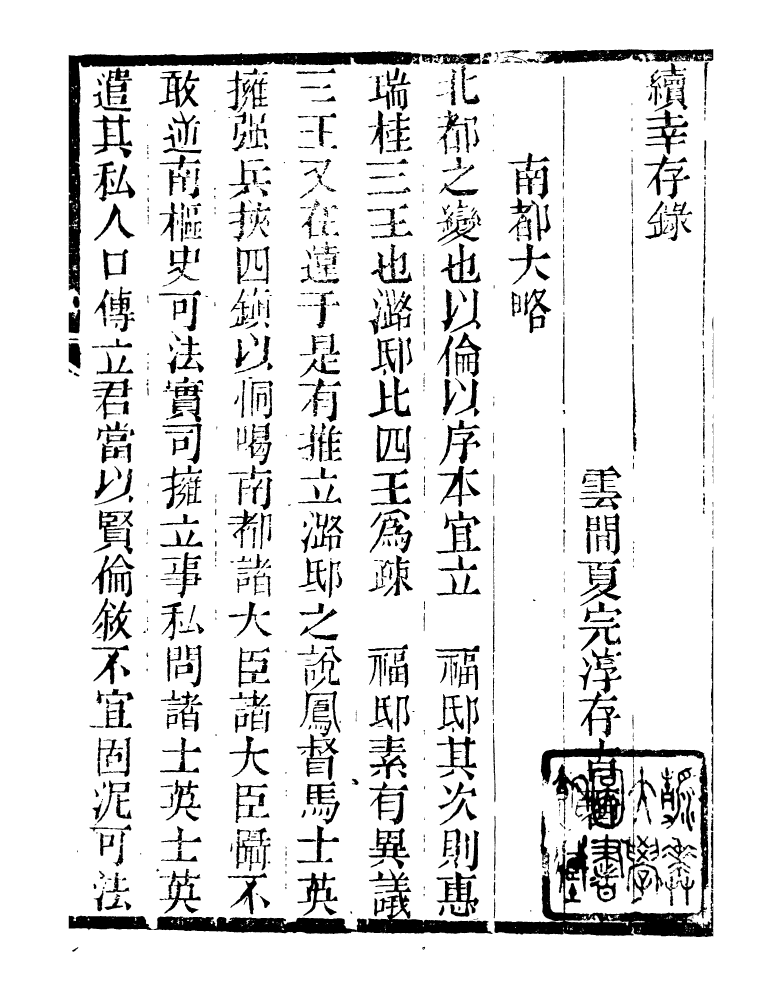 續幸存錄
雲間夏完淳存古
南都大略
北都之變也以倫以序本宜立　福邸其次則惠
瑞桂三王也潞邸比四王爲疎　福邸素有異議
三王又在遠于是有推立潞邸之說鳳督馬士英
擁强兵挾四鎮以恫喝南都諸大臣諸大臣懾不
敢逆南樞史可法實司擁立事私問諸士英士英
遣其私人口傳立君當以賢倫敘不宜固泥可法